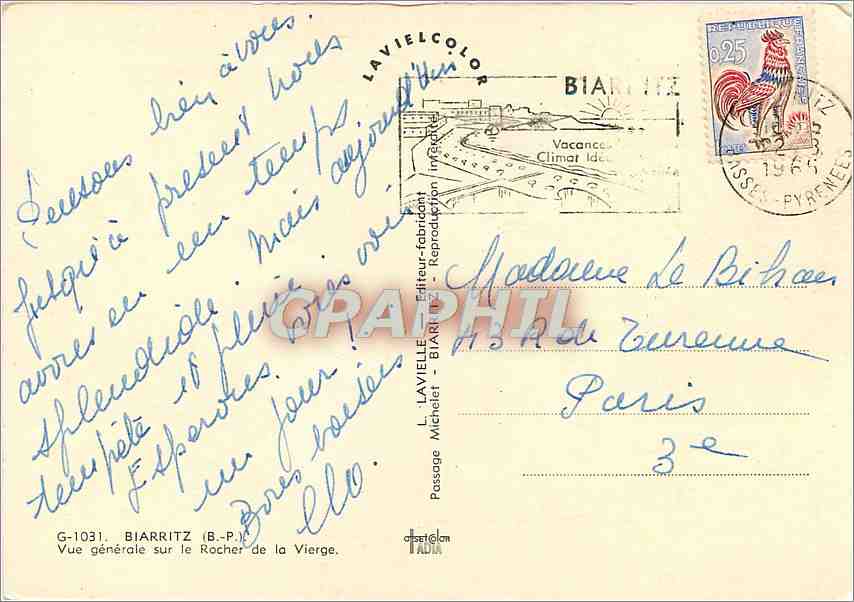 Pensons bien à vous.
Jusqu'à présent nous
avons eu un temps
splendide. Mais aujourd'hui
tempête et pluie.
Espérons vous voir
un jour!
Bons baisers
LAVIELCOLOR
BIARRITZ
Vacances
Climat
REPUBLIQUE FRANÇAISE
0,25
1965
BASSES-PYRENEES
L. LAVIELLE — Editeur-fabricant
Passage Michelet - BIARRITZ - Reproduction interdite
Madame Le Bihan
43 R de Turenne
Paris
3e
CPAPHIL
G-1031. BIARRITZ (B.-P.).
Vue générale sur le Rocher de la Vierge.
offset color
IADIA